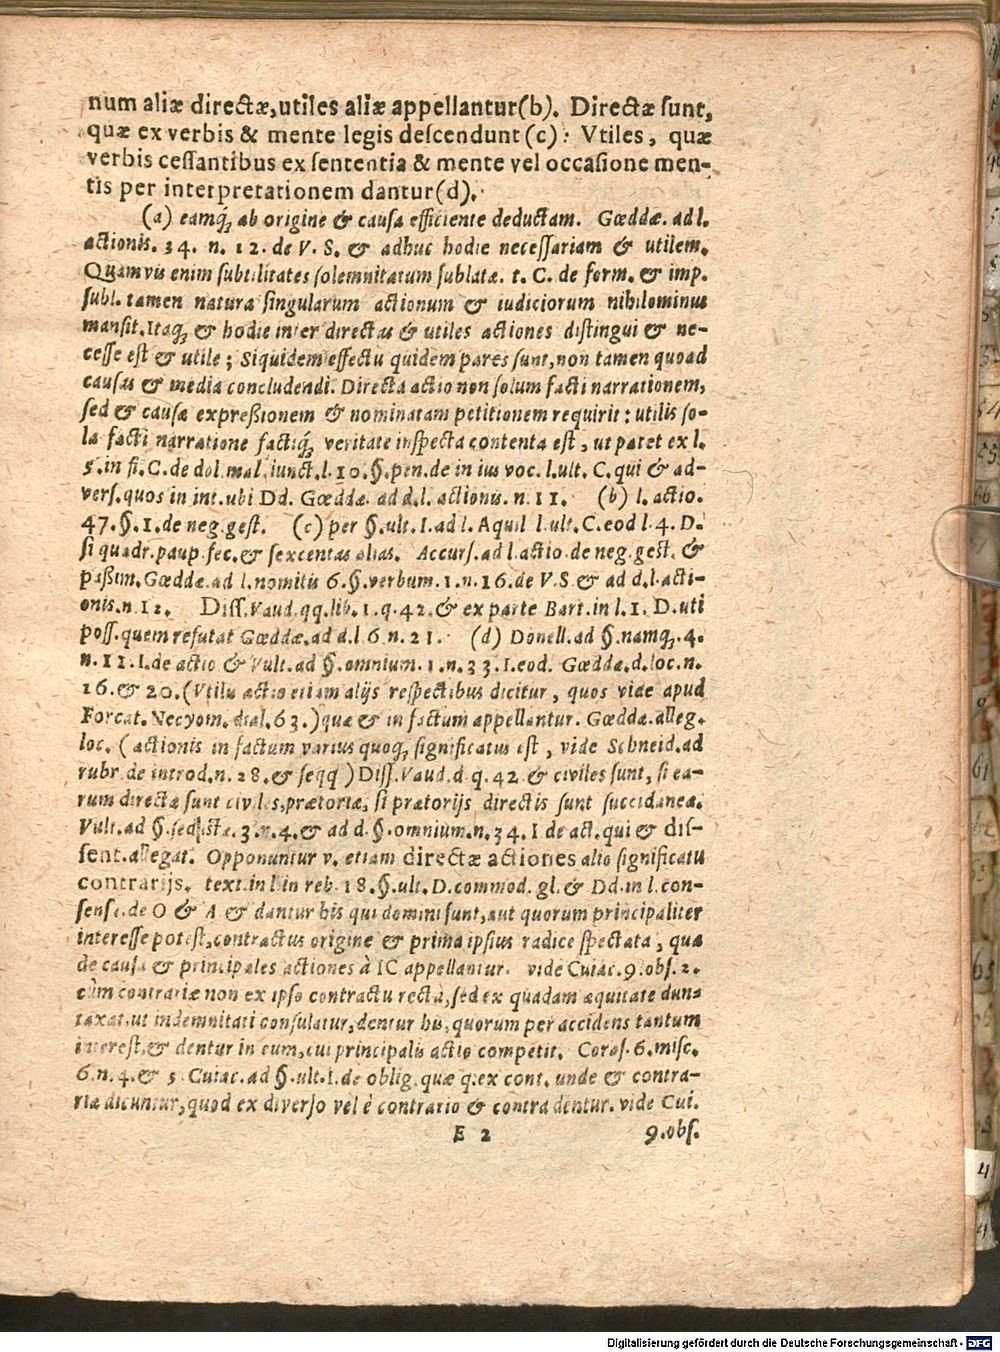 num aliæ directæ, utiles aliæ appellantur(b). Directæ ſunt,
quæ ex verbis & mente legis deſcendunt(c): Vtiles, quæ
verbis ceſſantibus ex ſententia & mente vel occaſione men-
tis per interpretationem dantur(d).
(a) eamq́; ab origine & cauſa efficiente deductam. Gœddæ. ad l.
actionis. 34. n. 12. de V. S. & adhuc hodie neceſſariam & utilem.
Quamvis enim ſubtilitates ſolemnitatum ſublatæ. t. C. de form. & imp.
ſubl. tamen natura ſingularum actionum & iudiciorum nihilominus
manſit. Itaq́; & hodie inter directas & utiles actiones diſtingui & ne-
ceſſe eſt & utile; Siquidem effectu quidem pares ſunt, non tamen quoad
cauſas & media concludendi. Directa actio non ſolum facti narrationem,
ſed & cauſæ expreßionem & nominatam petitionem requirit: utilis ſo-
la facti narratione factiq́; veritate inſpecta contenta eſt, ut patet ex l.
5. in fi. C. de dol. mal. iunct. l. 10. §. pen. de in ius voc. l. ult. C. qui & ad-
verſ. quos in int. ubi Dd. Gœddæ. ad d. l. actionis. n. 11. (b) l. actio.
47. §. 1. de neg. geſt. (c) per §. ult. I. ad l. Aquil l. ult. C. eod l. 4. D.
ſi quadr. paup. fec. & ſexcentas alias. Accurſ. ad l. actio. de neg. geſt. &
paßim. Gœddæ. ad l. nominis 6. §. verbum. 1. n. 16. de V. S & ad d. l. acti-
onis. n. 12. Diſſ. Vaud. qq. lib. 1. q. 42. & ex parte Bart. in l. 1. D. uti
poſſ. quem refutat Gœddæ. ad d. l. 6. n. 21. (d) Donell. ad §. namq́;. 4.
n. 11. I. de actio & Vult. ad §. omnium. 1. n. 33. I. eod. Gœddæ. d. loc. n.
16. & 20. (Vtilis actio etiam alijs reſpectibus dicitur, quos vide apud
Forcat. Necyom. dial. 63.) quæ & in factum appellantur. Gœddæ. alleg.
loc. (actionis in factum varius quoq́; ſignificatus eſt, vide Schneid. ad
rubr. de introd. n. 28. & ſeqq) Diſſ. Vaud. d. q. 42 & civiles ſunt, ſi ea-
rum directæ ſunt civiles, prætoriæ, ſi prætorijs directis ſunt ſuccidaneæ.
Vult. ad §. ſed iſtæ. 3. n. 4. & ad d. §. omnium. n. 34. I de act. qui & diſ-
ſent. allegat. Opponuntur v. etiam directæ actiones alio ſignificatu
contrarijs. text. in l. in reb. 18. §. ult. D. commod. gl. & Dd. in l. con-
ſenſ. de O & A & dantur his qui domini ſunt, aut quorum principaliter
intereſſe poteſt, contractus origine & prima ipſius radice ſpectata, quæ
de cauſa & principales actiones à IC appellantur. vide Cuiac. 9. obſ. 2.
cùm contrariæ non ex ipſo contractu rectà, ſed ex quadam æquitate dun-
taxat, ut indemnitati conſulatur, dentur his, quorum per accidens tantum
intereſt, & dentur in eum, cui principalis actio competit. Coraſ. 6. miſc.
6. n. 4. & 5 Cuiac. ad §. ult. I. de oblig. quæ q. ex cont. unde & contra-
riæ dicuntur, quod ex diverſo vel è contrario & contra dentur. vide Cui.
E 2 9. obſ.
4
4
Digitalisierung gefördert durch die Deutsche Forschungsgemeinschaft - DFG